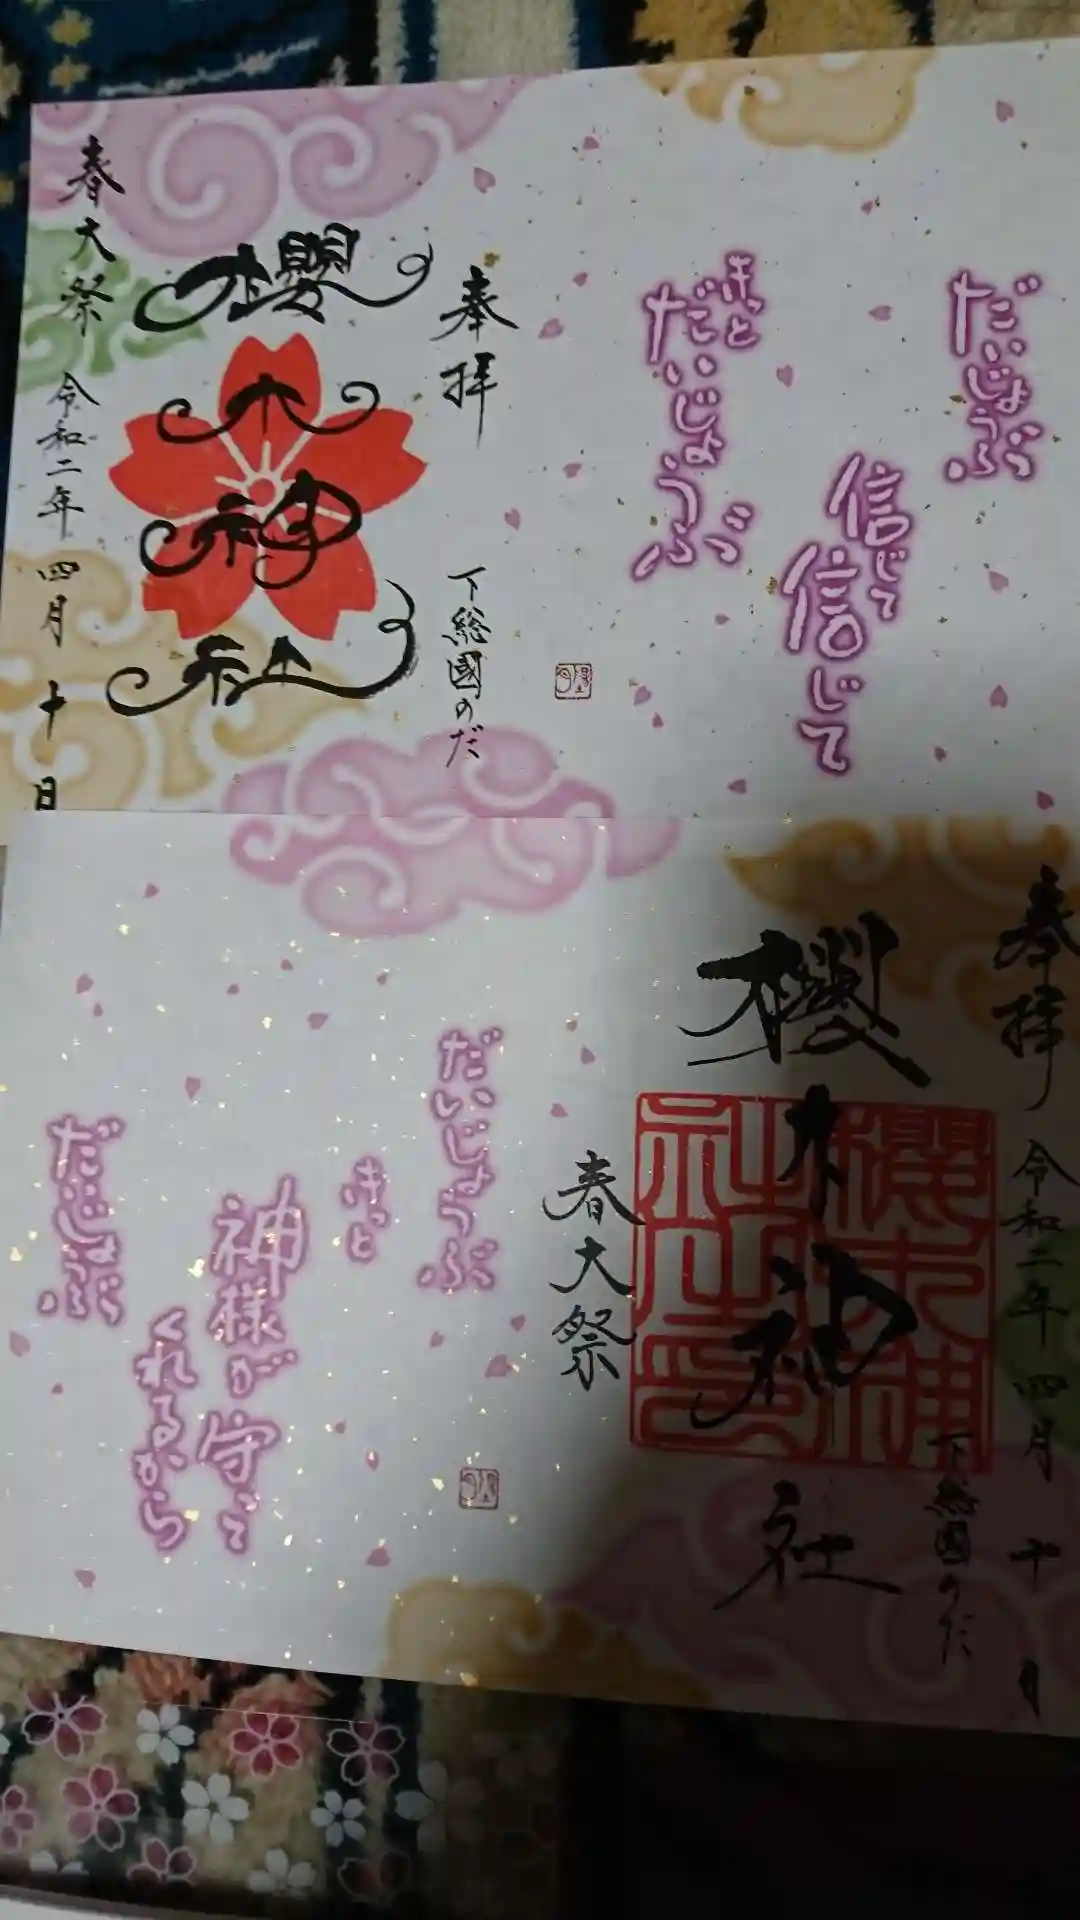 だいじょうぶ
信じて
信じて
きっと
だいじょうぶ
奉拝
下総國のだ
櫻木神社
春大祭 令和二年 四月 十日
奉拝 令和二年 四月 十日
下総國のだ
櫻木神社
櫻木神社印
春大祭
だいじょうぶ
きっと
神様が守って
くれるから
だいじょうぶ